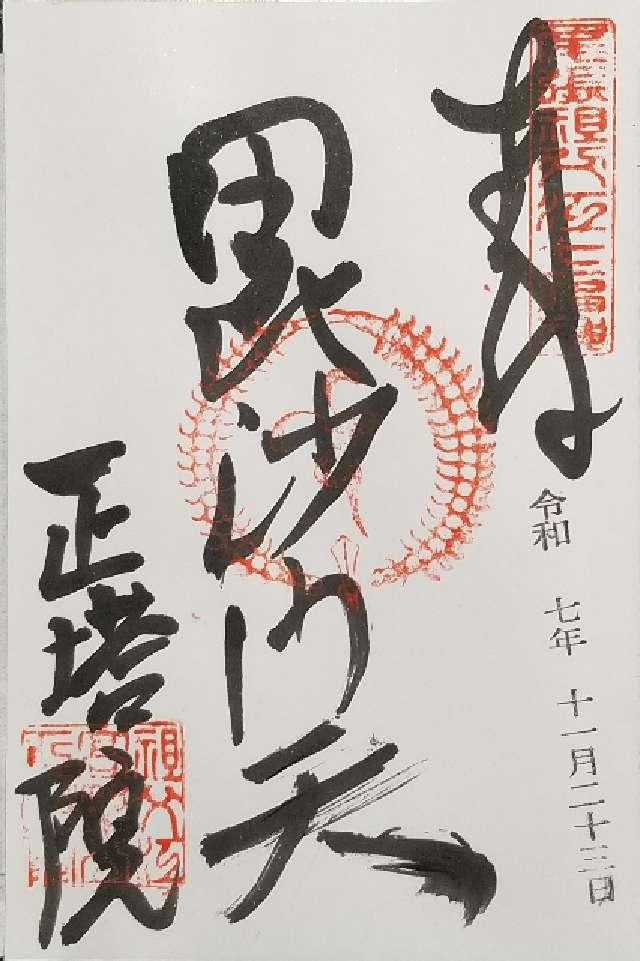 奉拝
令和 七年 十一月二十三日
毘沙門天
正塔院